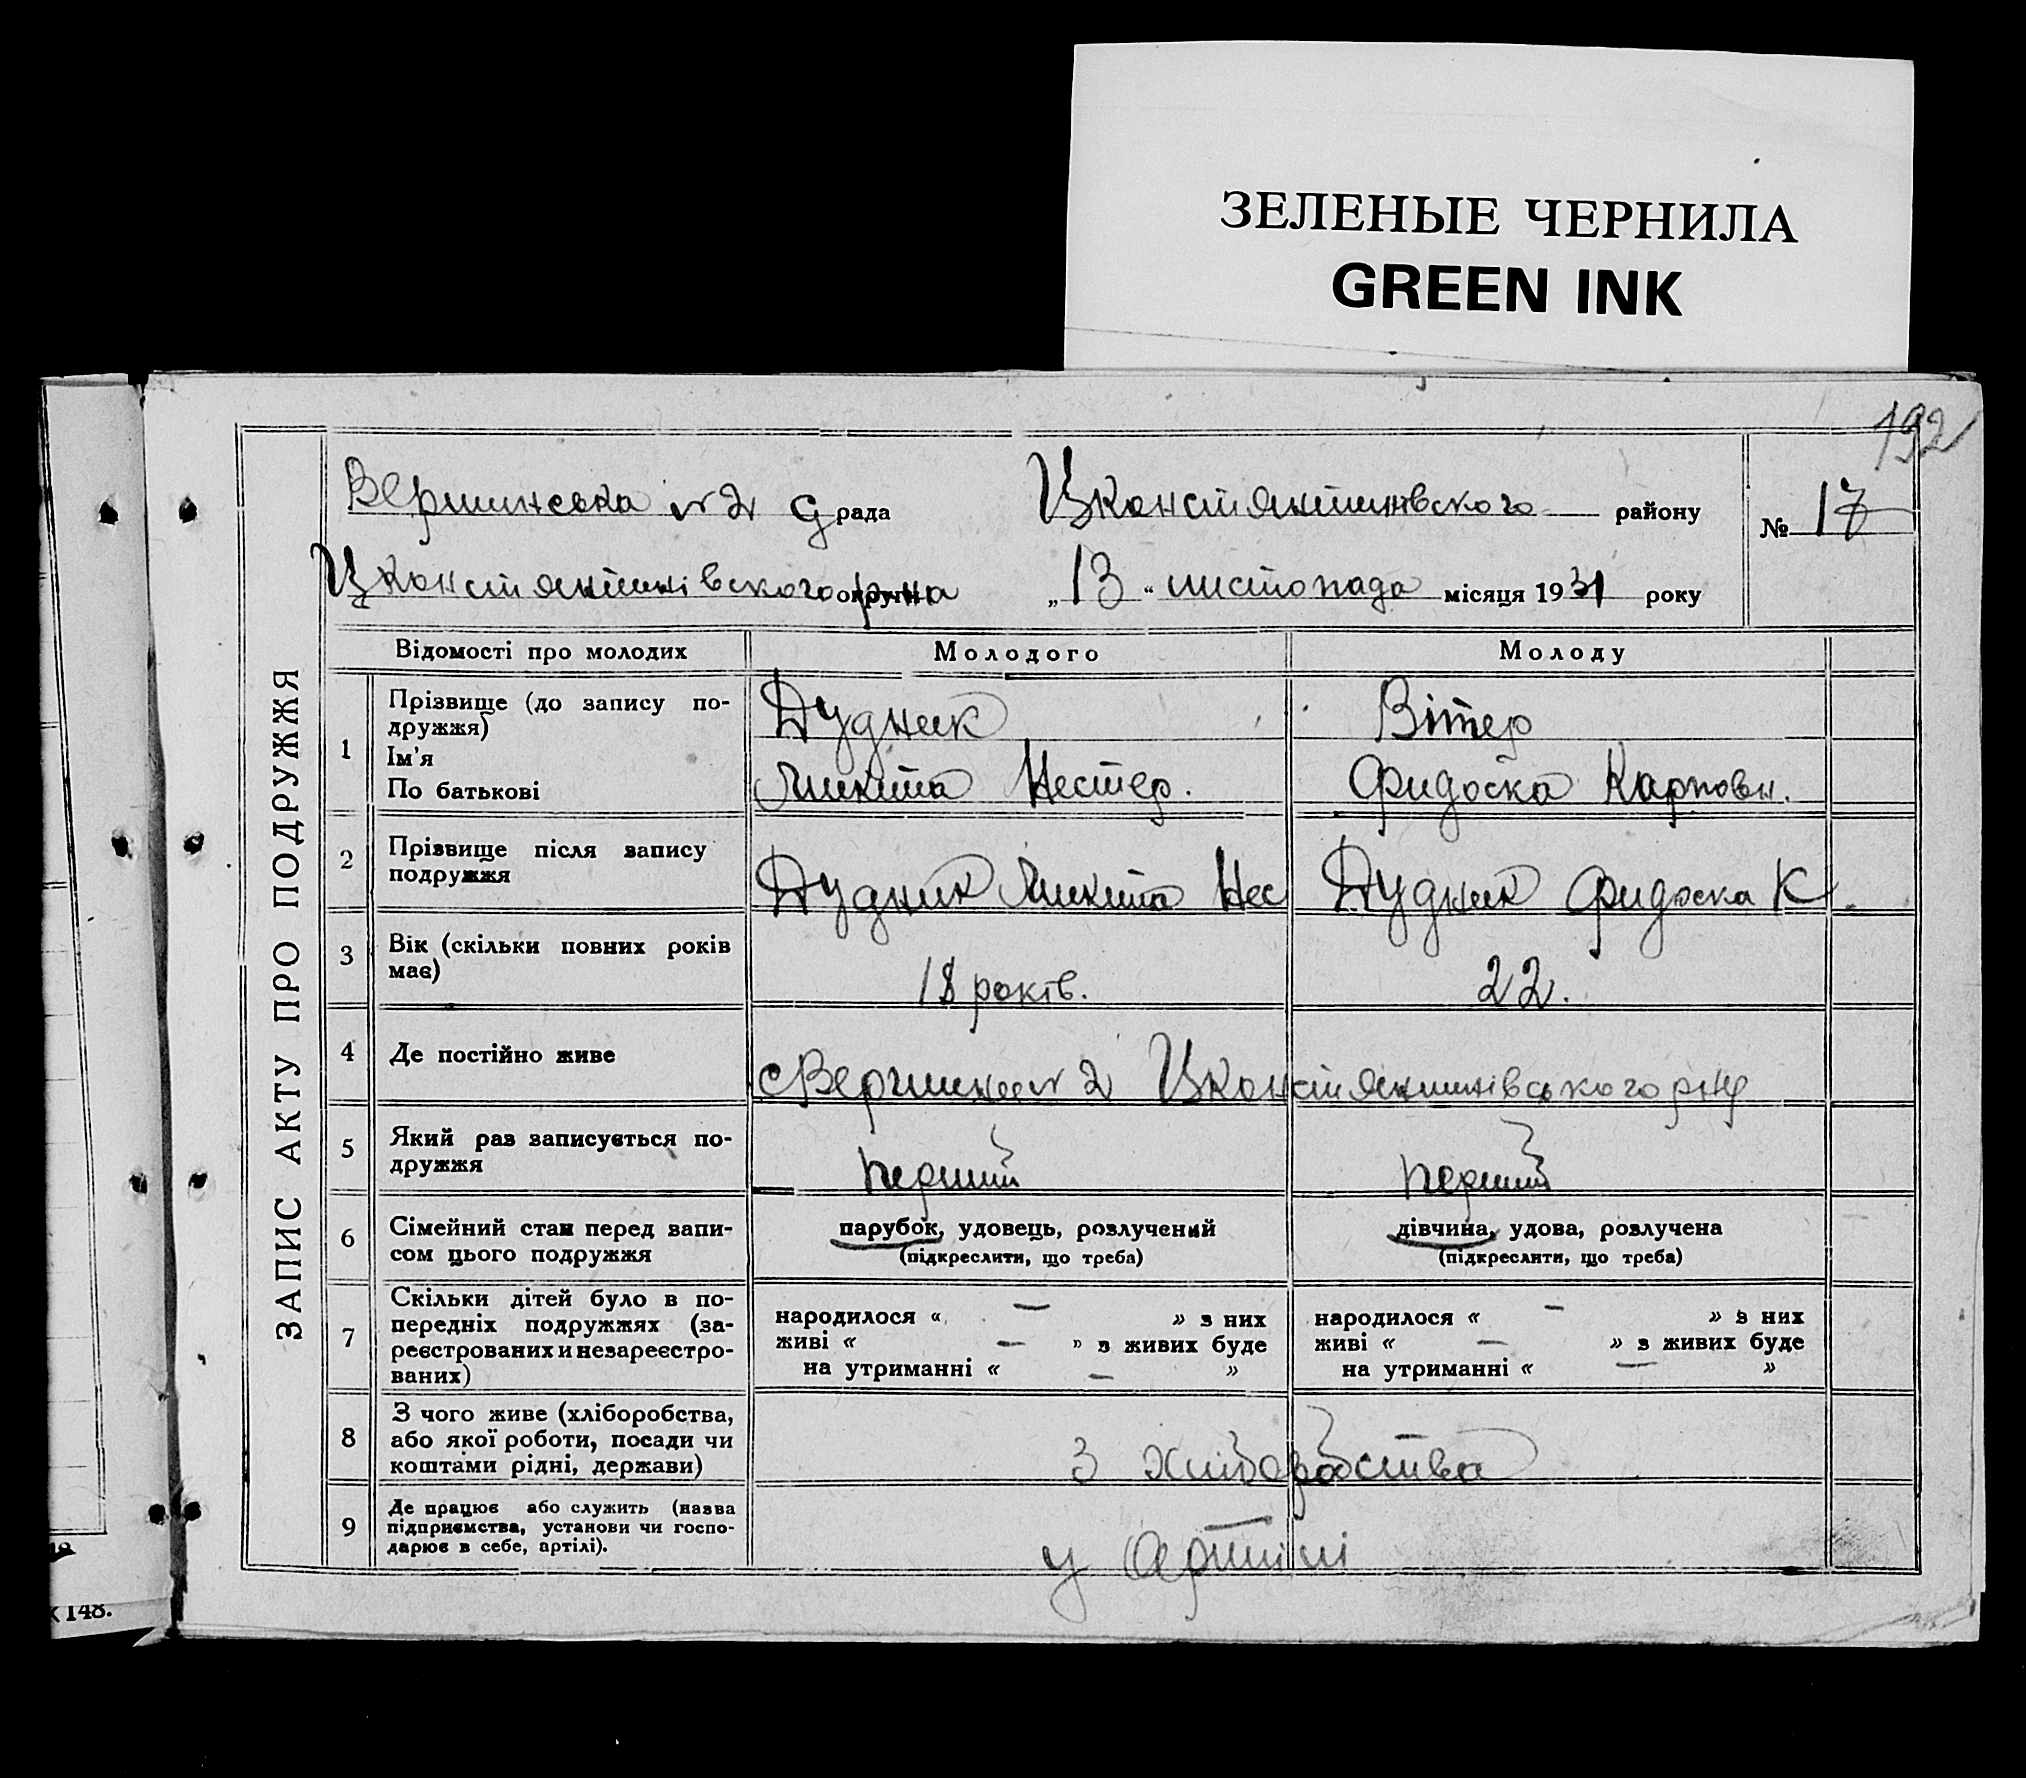 ЗЕЛЕНЫЕ ЧЕРНИЛА
GREEN INK
192
Вершинська №2 С рада Цконстянтинівского району № 17
Цконстянтинівского округи р-на „13“ листопада місяця 1931 року
ЗАПИС АКТУ ПРО ПОДРУЖЖЯ
Відомості про молодих Молодого Молоду
1 Прізвище (до запису по-
дружжя) Дудник Вітер
Ім'я
По батькові Микита Нестер. Фидоска Карповн.
2 Прізвище після запису
подружжя Дудник Микита Нес Дудник Фидоска К
3 Вік (скільки повних років
має) 18 років. 22.
4 Де постійно живе с Вершина №2 Цконстянтинівського р-ну
5 Який раз записується по-
дружжя перший перший
6 Сімейний стан перед запи-
сом цього подружжя
парубок, удовець, розлучений дівчина, удова, розлучена
(підкреслити, що треба) (підкреслити, що треба)
7 Скільки дітей було в по-
передніх подружжях (за-
реєстрованих и незареєстро-
ваних)
народилося « — » з них народилося « — » з них
живі « — » з живих буде живі « — » з живих буде
на утриманні « — » на утриманні « — »
8 З чого живе (хліборобства,
або якої роботи, посади чи
коштами рідні, держави)
З хліборобства
9 Де працює або служить (назва
підприємства, установи чи госпо-
дарює в себе, артілі).
у Артілі
148.